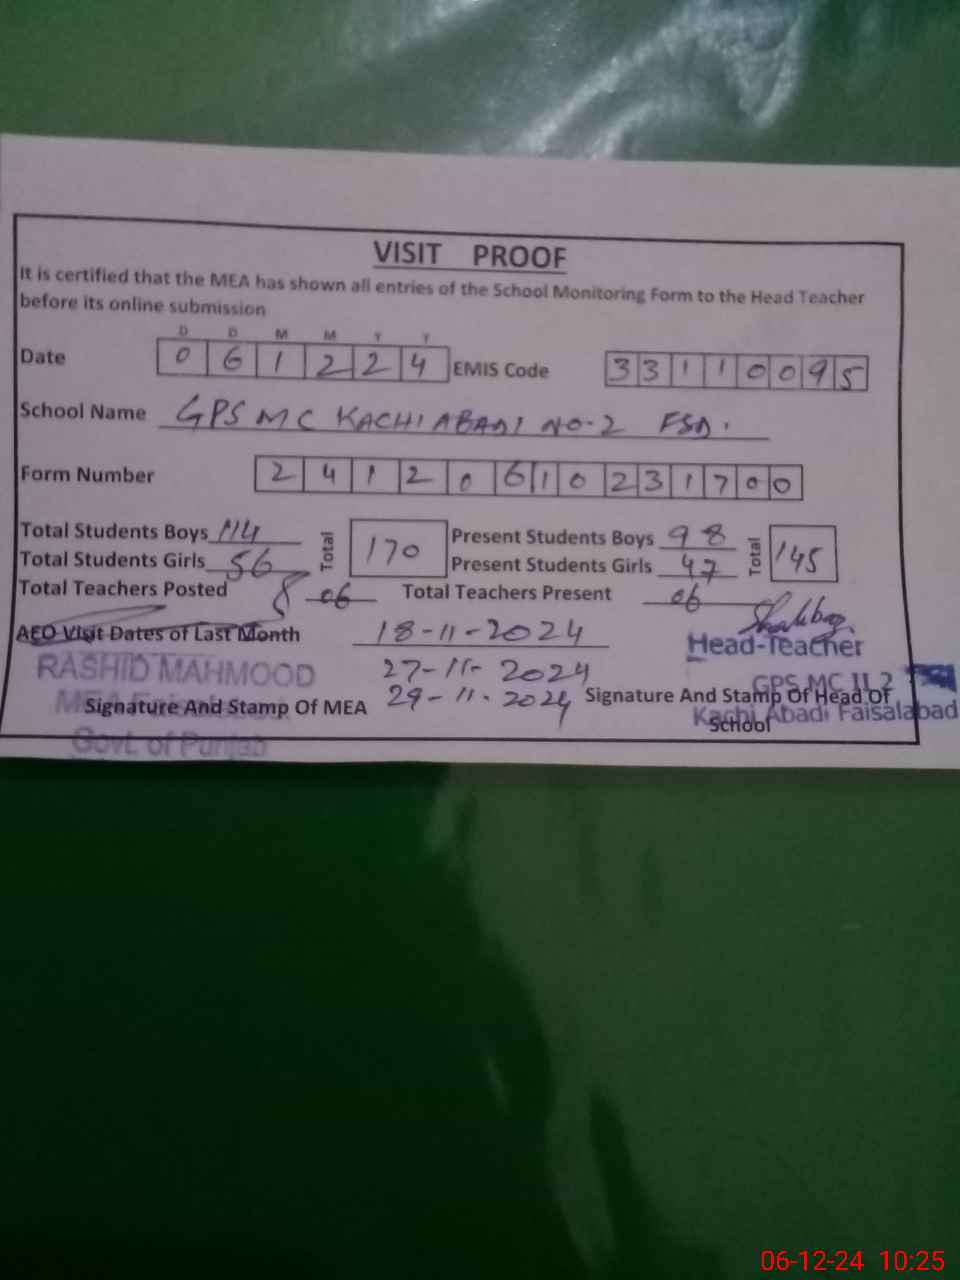 VISIT PROOF
It is certified that the MEA has shown all entries of the School Monitoring Form to the Head Teacher
before its online submission
D D M M Y Y
Date 0 6 1 2 2 4 EMIS Code 3 3 1 1 0 0 9 5
School Name GPS MC KACHI ABADI NO-2 FSD.
Form Number 2 4 1 2 0 6 1 0 2 3 1 7 0 0
Total Students Boys 114 Total 170 Present Students Boys 98 Total 145
Total Students Girls 56 Present Students Girls 47
Total Teachers Posted 06 Total Teachers Present 06
AEO Visit Dates of Last Month 18-11-2024
Head-Teacher
RASHID MAHMOOD 27-11-2024
GPS MC II 2
Signature And Stamp Of MEA 29-11-2024 Signature And Stamp Of Head Of
School
Kachi Abadi Faisalabad
Govt. of Punjab
06-12-24 10:25